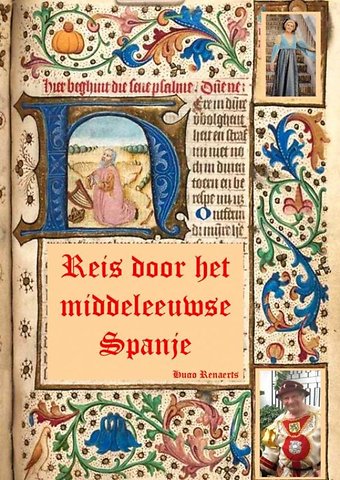 hier beghint die seuē psalme. Dñe ne:
Eer in
vbolghent
heit en straf
mi niet no
toern en be
Ontferm
Reis door het
middeleeuwse
Spanje
Hugo Renaerts